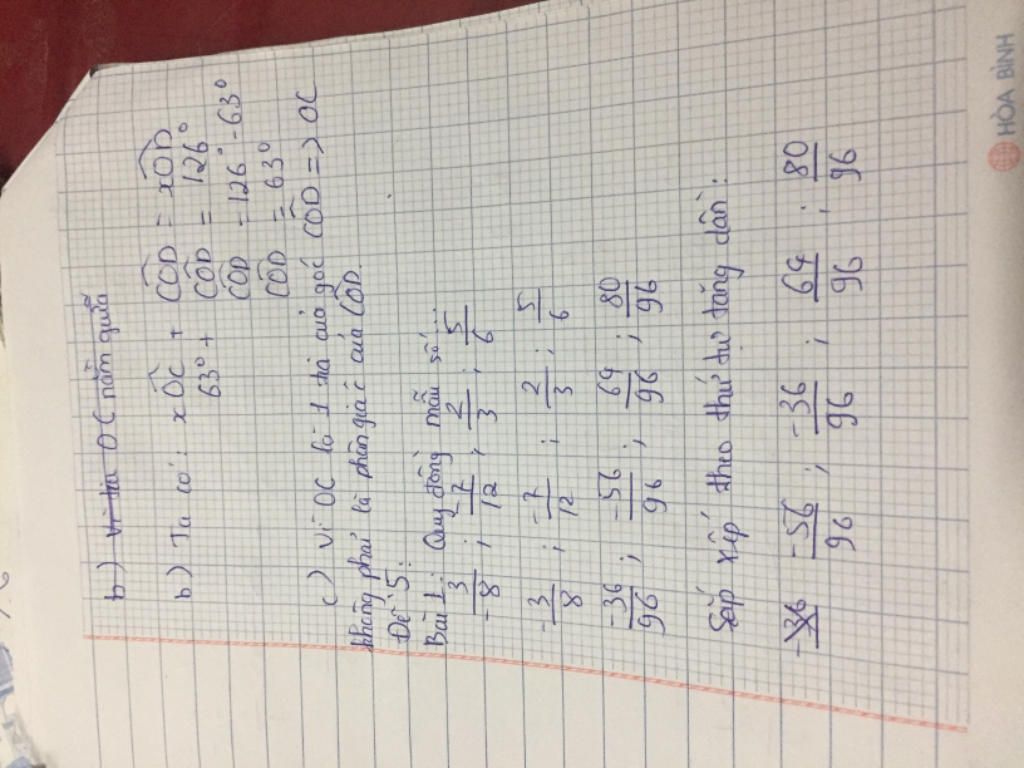 b) Vì tia OC nằm giữa
b) Ta có: xOC + COD = xOD
63° + COD = 126°
COD = 126° - 63°
COD = 63°
c) Vì OC là 1 tia của góc COD => OC
không phải là phân giác của COD.
Đề 5:
Bài 1: Quy đồng mẫu số...
3/-8 ; -7/12 ; 2/3 ; 5/6
-3/8 ; -7/12 ; 2/3 ; 5/6
-36/96 ; -56/96 ; 64/96 ; 80/96
Sắp xếp theo thứ tự tăng dần:
-36 -56/96 ; -36/96 ; 64/96 ; 80/96
HÒA BÌNH